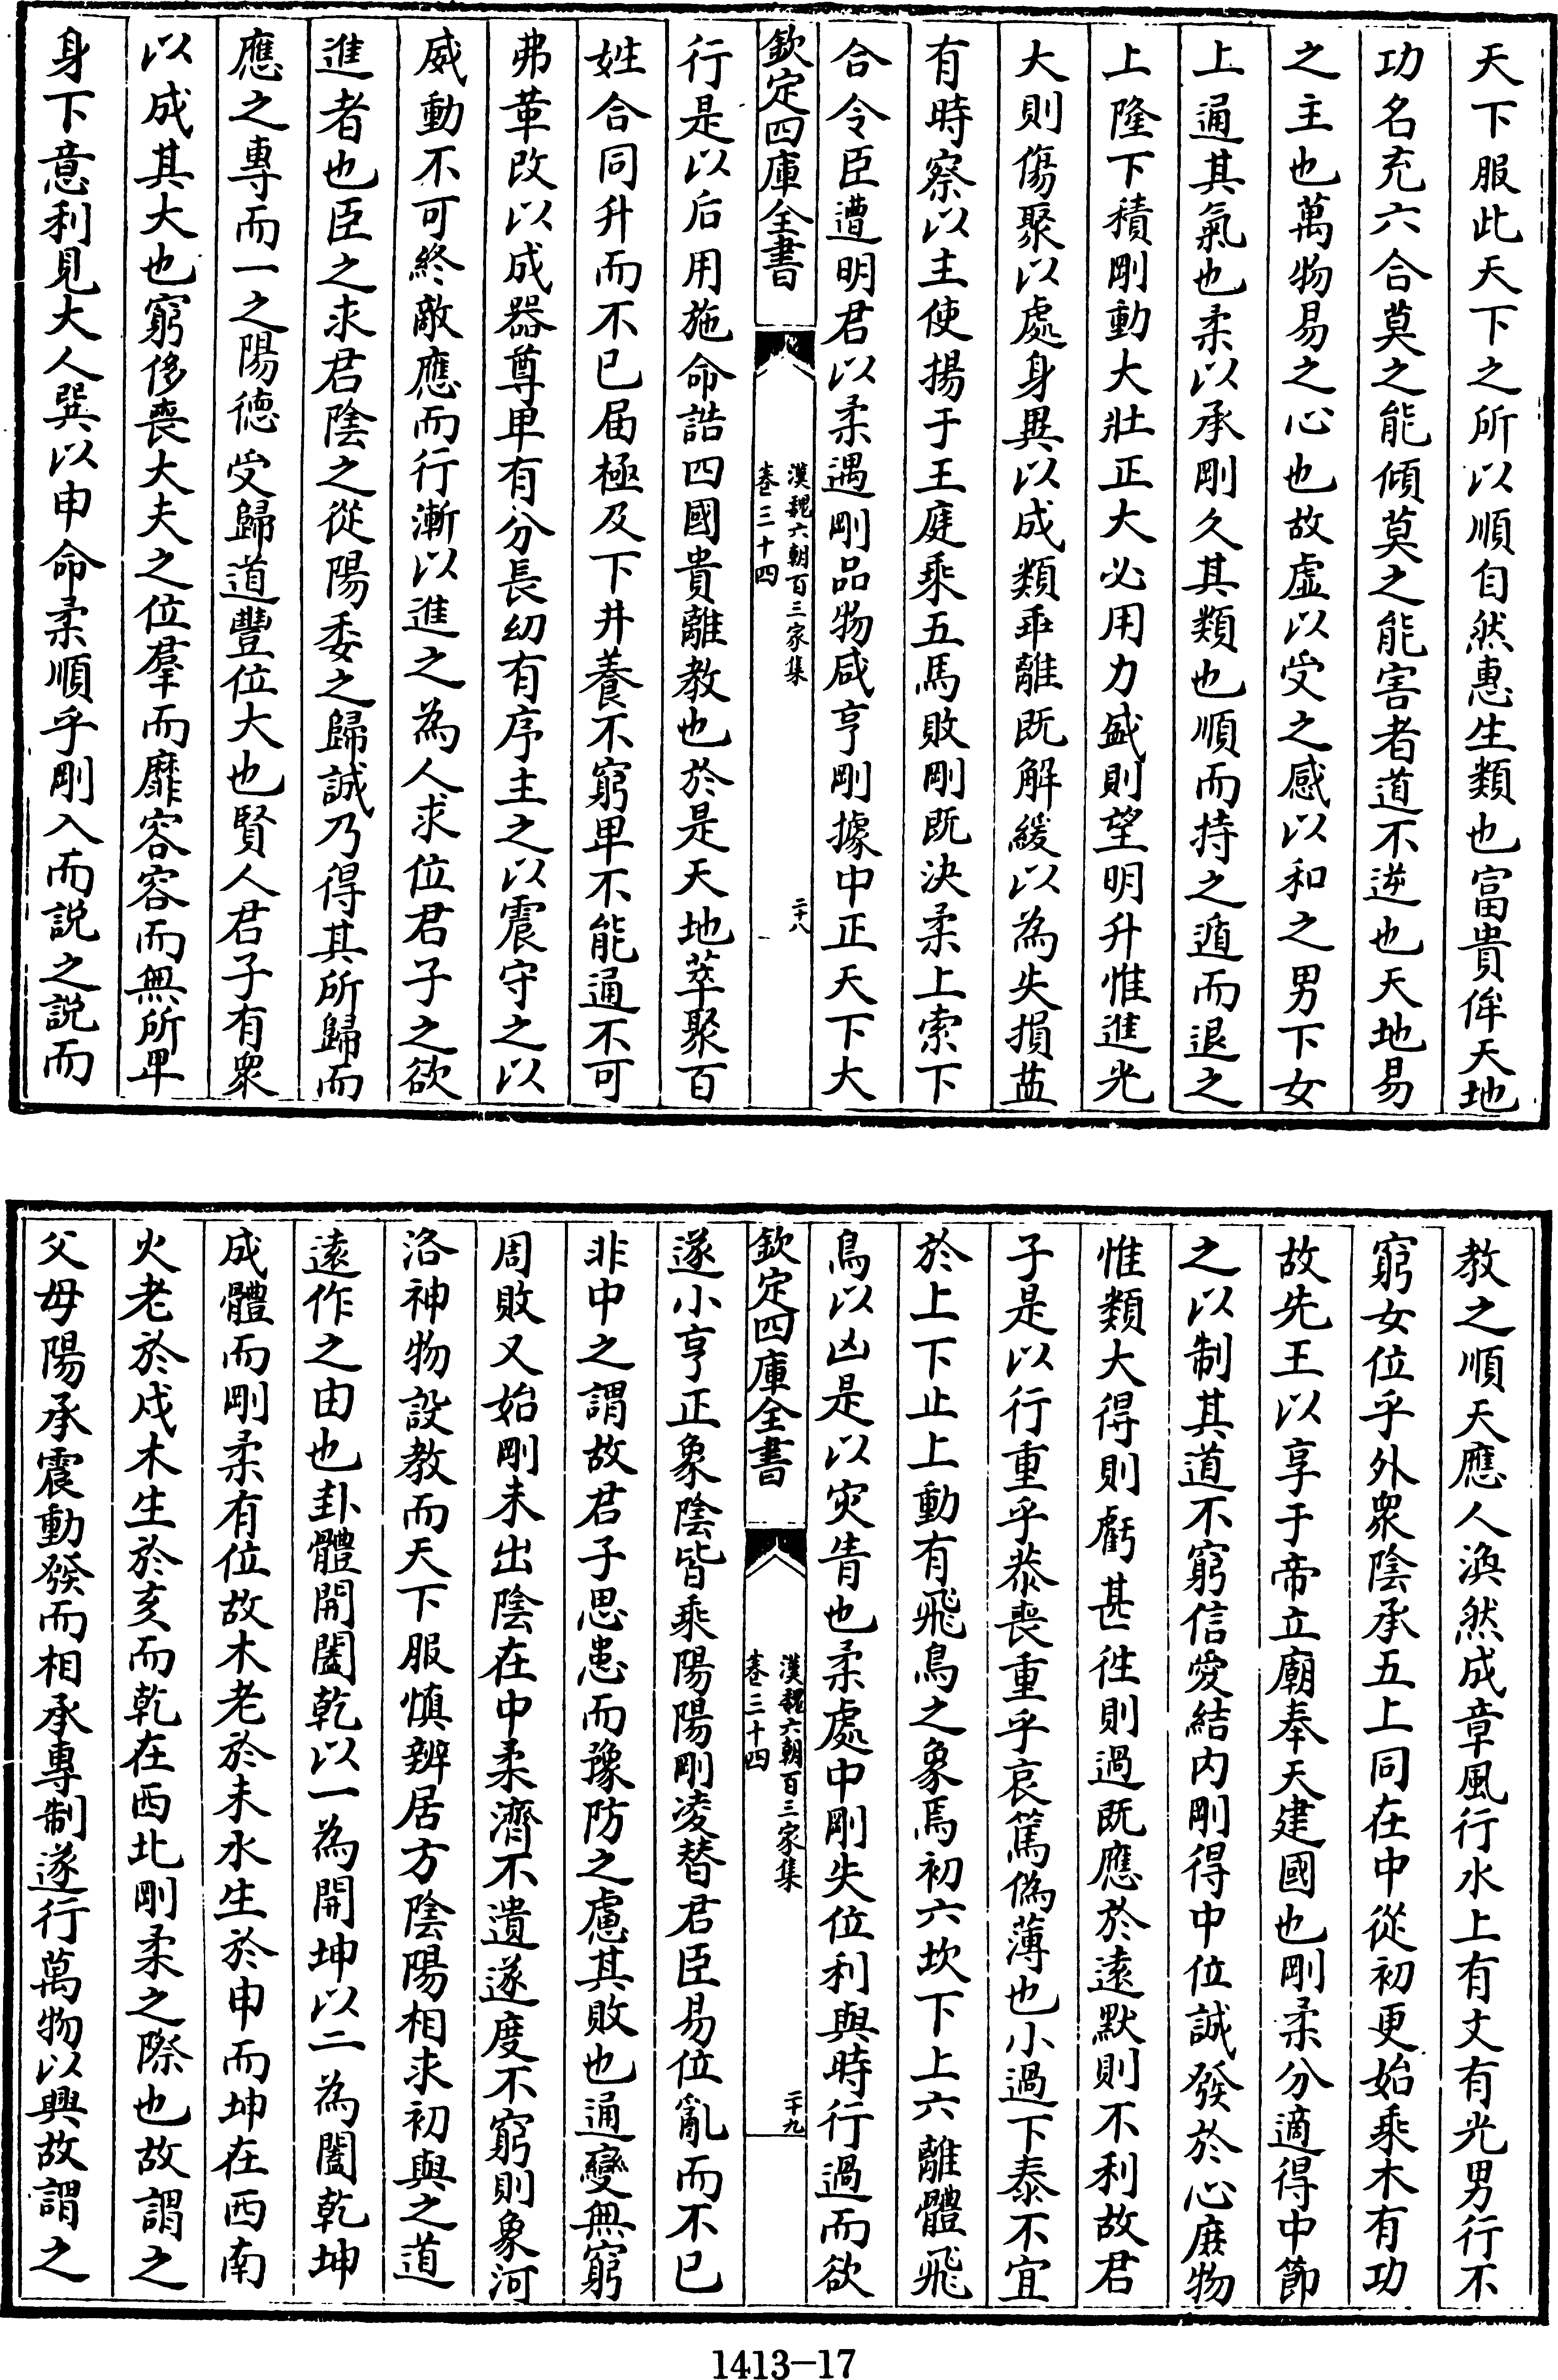 天下服此天下之所以順自然惠生類也富貴侔天地
功名充六合莫之能傾莫之能害者道不逆也天地易
之主也萬物易之心也故虛以受之感以和之男下女
上通其氣也柔以承剛久其類也順而持之遁而退之
上隆下積剛動大壯正大必用力盛則望明升惟進光
大則傷聚以處身異以成類乖離既解緩以為失損益
有時察以主使揚于王庭乘五馬敗剛既決柔上索下
合令臣遭明君以柔遇剛品物咸亨剛據中正天下大
欽定四庫全書
漢魏六朝百三家集
卷三十四
二十八
行是以后用施命誥四國貴離教也於是天地萃聚百
姓合同升而不已屆極及下井養不窮卑不能通不可
弗革改以成器尊卑有分長幼有序主之以震守之以
威動不可終敵應而行漸以進之為人求位君子之欲
進者也臣之求君陰之從陽委之歸誠乃得其所歸而
應之專而一之陽德受歸道豐位大也賢人君子有衆
以成其大也窮侈喪大夫之位羣而靡容容而無所卑
身下意利見大人巽以申命柔順乎剛入而説之説而
教之順天應人渙然成章風行水上有文有光男行不
窮女位乎外衆陰承五上同在中從初更始乘木有功
故先王以享于帝立廟奉天建國也剛柔分適得中節
之以制其道不窮信愛結内剛得中位誠發於心庶物
惟類大得則虧甚徃則過既應於遠默則不利故君
子是以行重乎恭喪重乎哀篤偽薄也小過下泰不宜
於上下止上動有飛鳥之象焉初六坎下上六離體飛
鳥以凶是以灾眚也柔處中剛失位利與時行過而欲
欽定四庫全書
漢魏六朝百三家集
卷三十四
二十九
遂小亨正象陰皆乘陽陽剛凌替君臣易位亂而不已
非中之謂故君子思患而豫防之慮其敗也通變無窮
周敗又始剛未出陰在中柔濟不遺遂度不窮則象河
洛神物設教而天下服慎辨居方陰陽相求初與之道
遠作之由也卦體開闔乾以一為開坤以二為闔乾坤
成體而剛柔有位故木老於未水生於申而坤在西南
火老於戌木生於亥而乾在西北剛柔之際也故謂之
父母陽承震動發而相承專制遂行萬物以興故謂之
1413-17